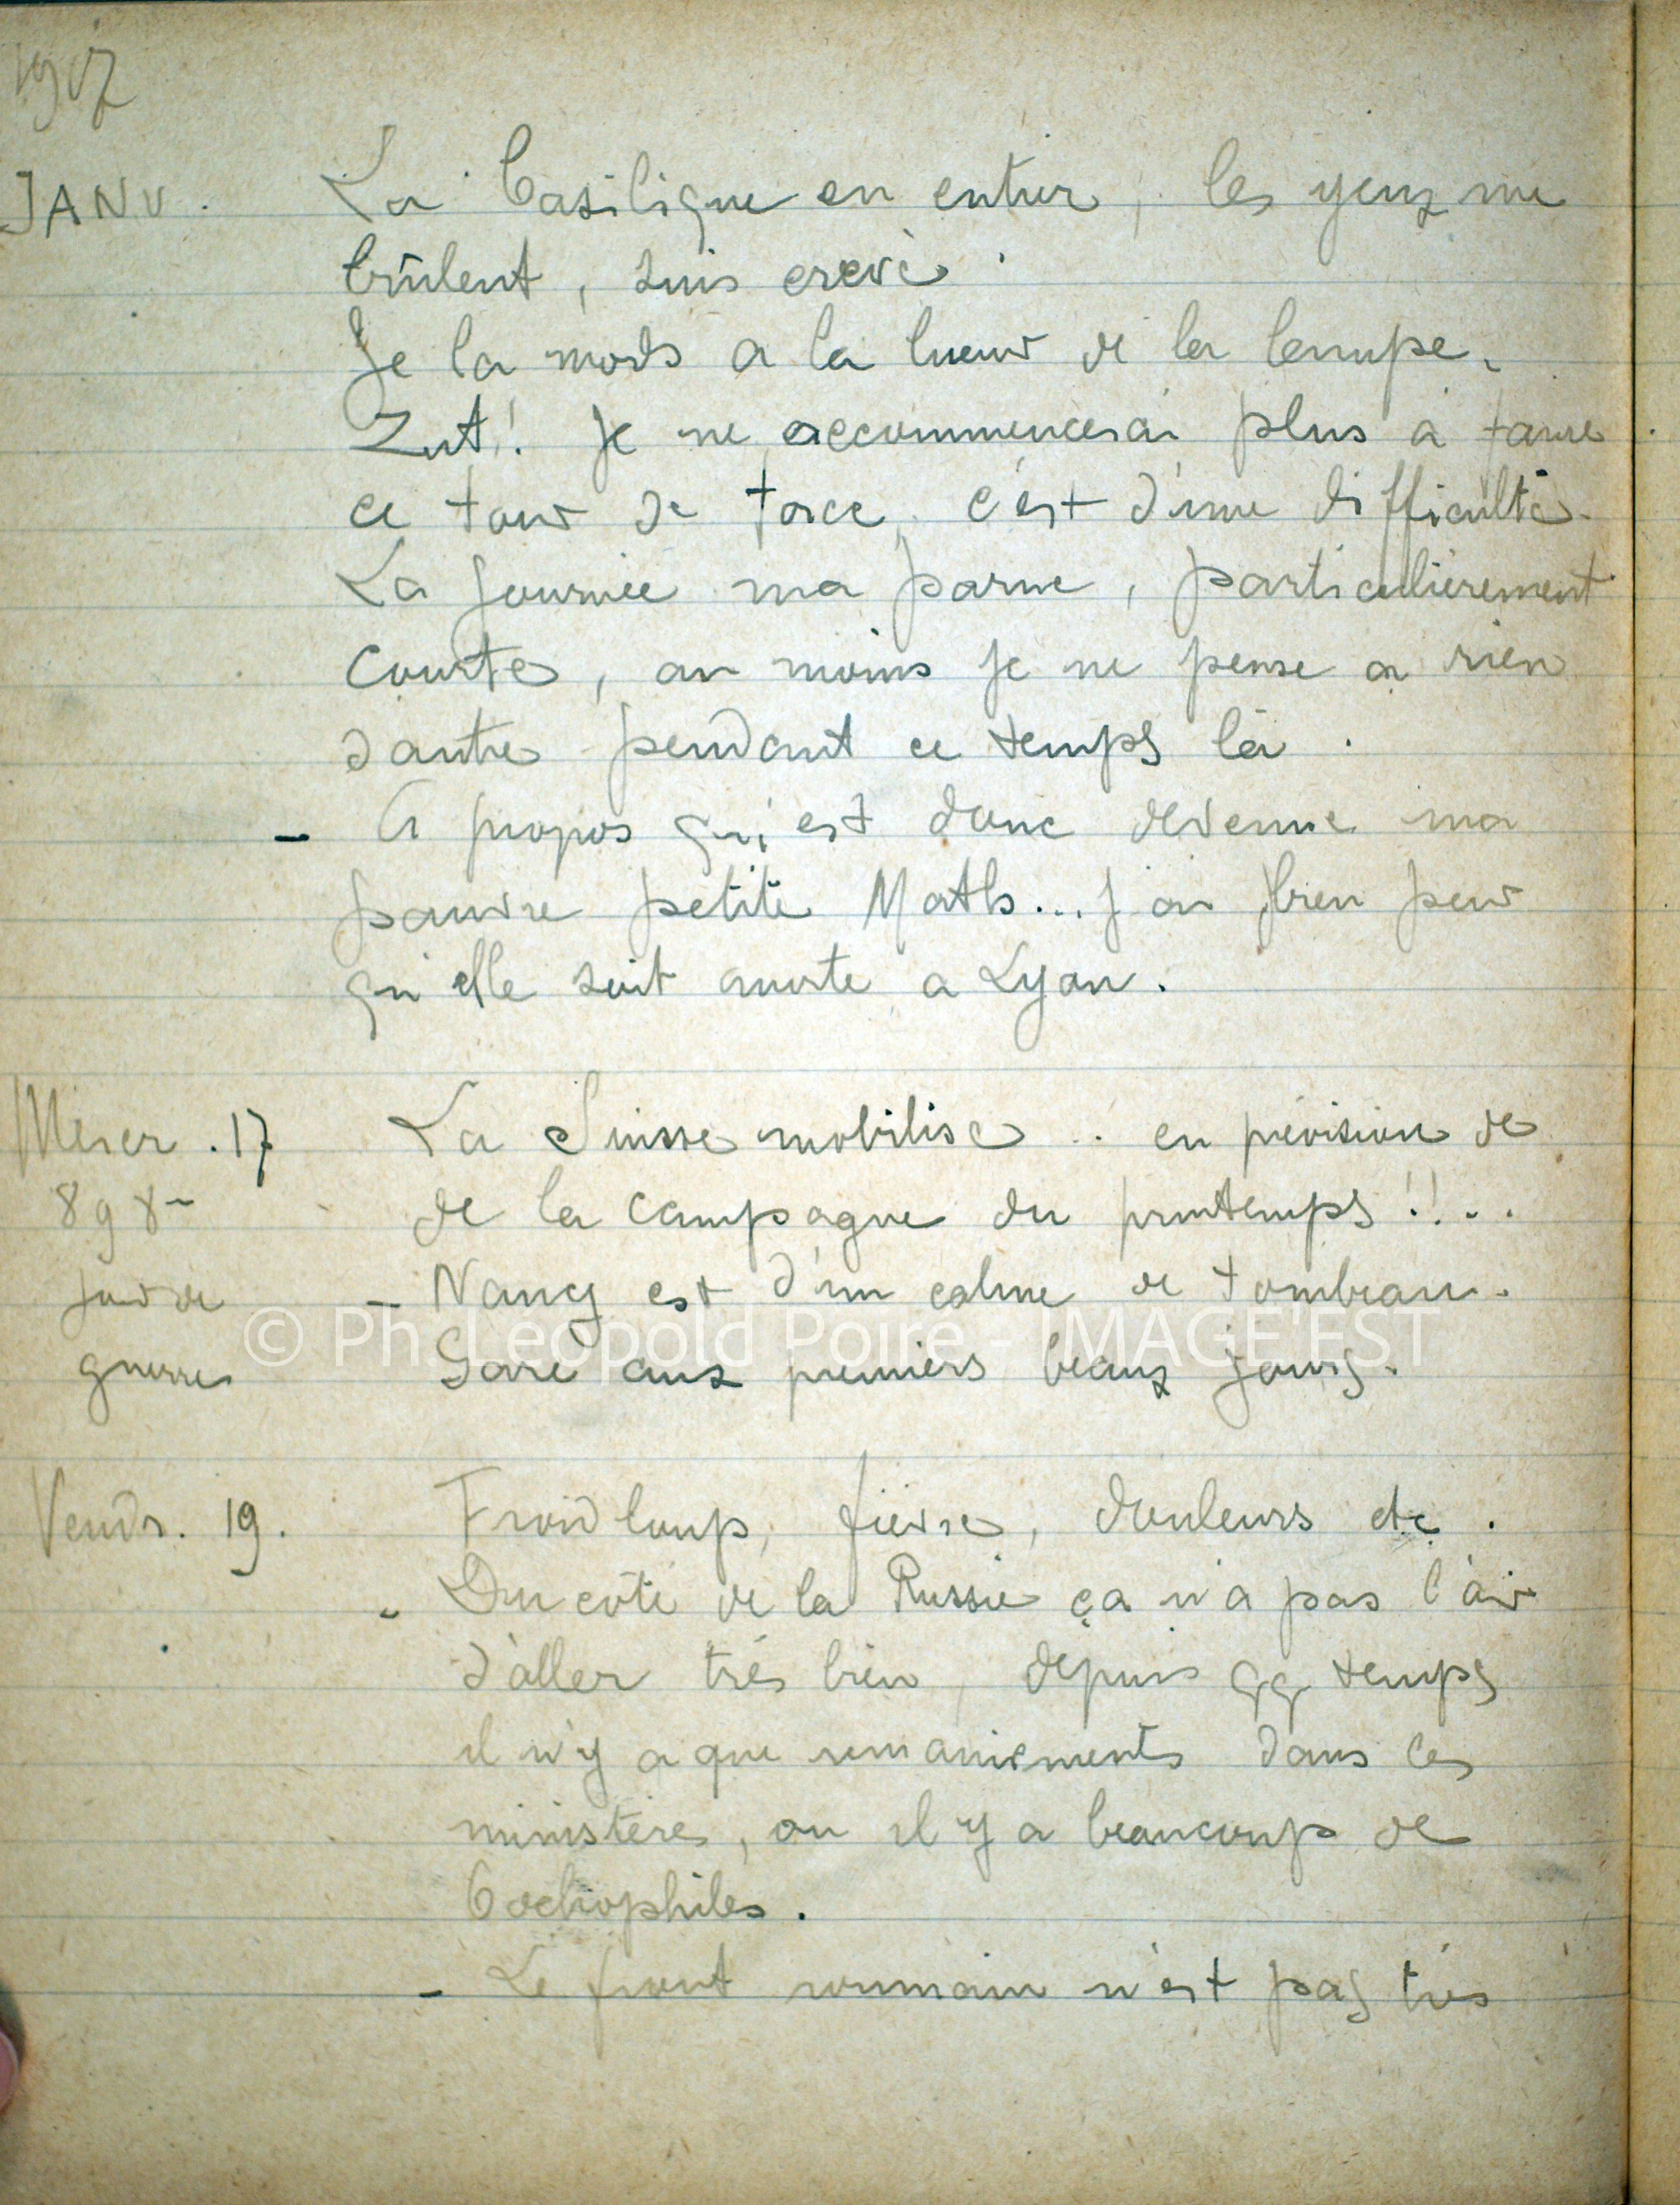 1917
JANV. La basilique en entier, les yeux me
brûlent, suis crevé.
Je la mords a la lueur de la lampe.
Zut! Je ne recommencerai plus à faire
ce tour de force, c'est d'une difficulté.
La journée ma parue, particulièrement
courte, au moins je ne pense a rien
d'autre pendant ce temps là.
- A propos qu'est donc devenue ma
pauvre petite Math... j'ai bien peur
qu'elle soit morte a Lyon.
Mercr. 17 La Suisse mobilise .. en prévision de
898e de la campagne du printemps !!..
jour de - Nancy est d'un calme de tombeau.
guerre Gare aux premiers beaux jours.
© Ph. Léopold Poiré - IMAGE'EST
Vendr. 19. Froid loup, fièvre, douleurs etc.
- Du coté de la Russie ça n'a pas l'air
d'aller très bien, depuis qq temps
il n'y a que remaniements dans les
ministères, ou il y a beaucoup de
bochophiles.
- Le front roumain n'est pas très